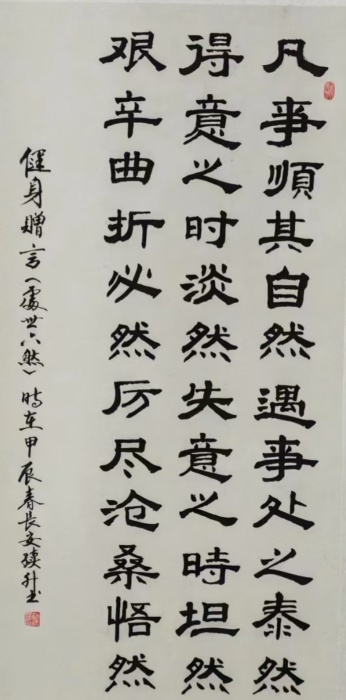 凡事順其自然遇事处之泰然
得意之时淡然失意之時坦然
艰辛曲折必然历尽沧桑悟然
健身赠言《處世六然》時在甲辰春長安續升书